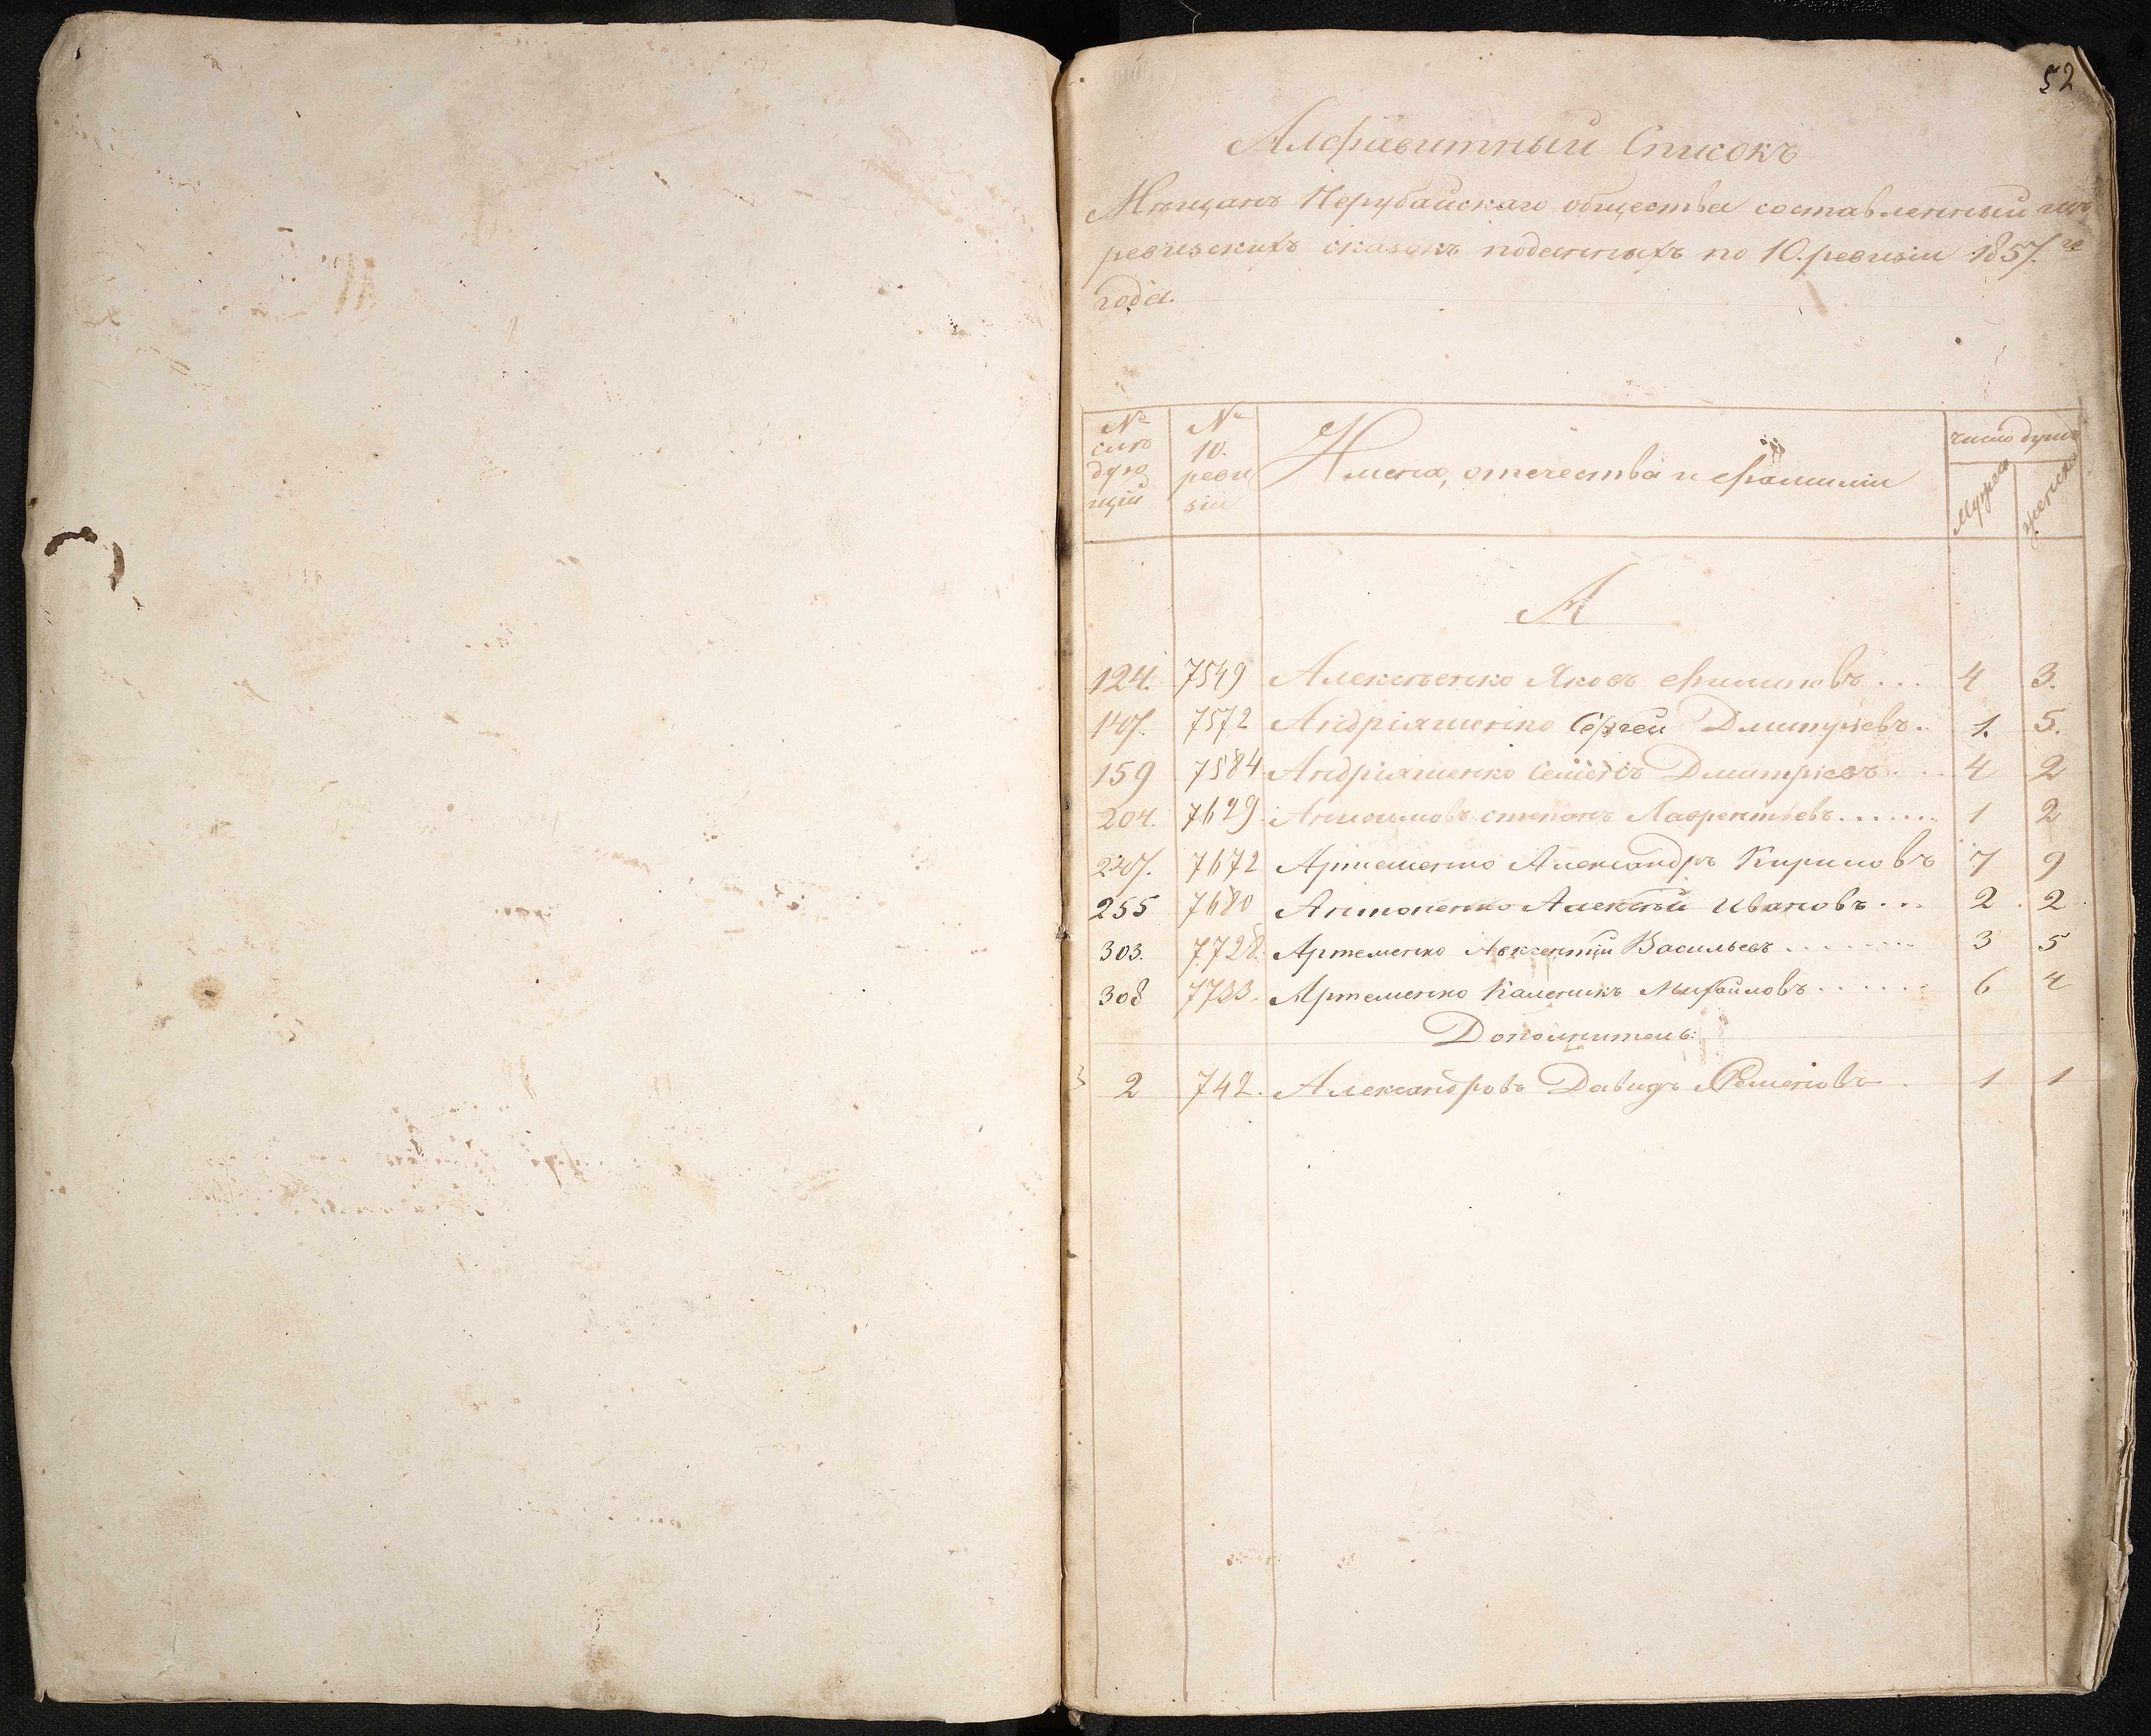 52
Алфавитный Списокъ
Мѣщанъ Нерубайскаго общества составленный изъ
ревизскихъ сказокъ поданныхъ по 10. ревизіи 1857. го
года.
№ слѣдующій № 10. ревизіи Имена, отечества и фамиліи число душъ Мужеск женска
А
124. 7549 Алексѣенко Яковъ Филиповъ ... 4 3.
147. 7572 Андріяшенко Сергей Дмитріевъ. 1. 5.
159 7584 Андріяшенко Семенъ Дмитріевъ... 4 2
204. 7629 степанъ Лаврентьевъ....... 1 2
247. 7672 Артеменко Александръ Кириловъ 7 9
255 7680 Антоненко Алексѣй Ивановъ... 2 2
303. 7728. Артеменко Авксентий Васильевъ ........ 3 5
308 7733. Артеменко Каленикъ Михайловъ ...... 6 4
Дополнитель:
2 742. Александровъ Давидъ Семеновъ 1 1